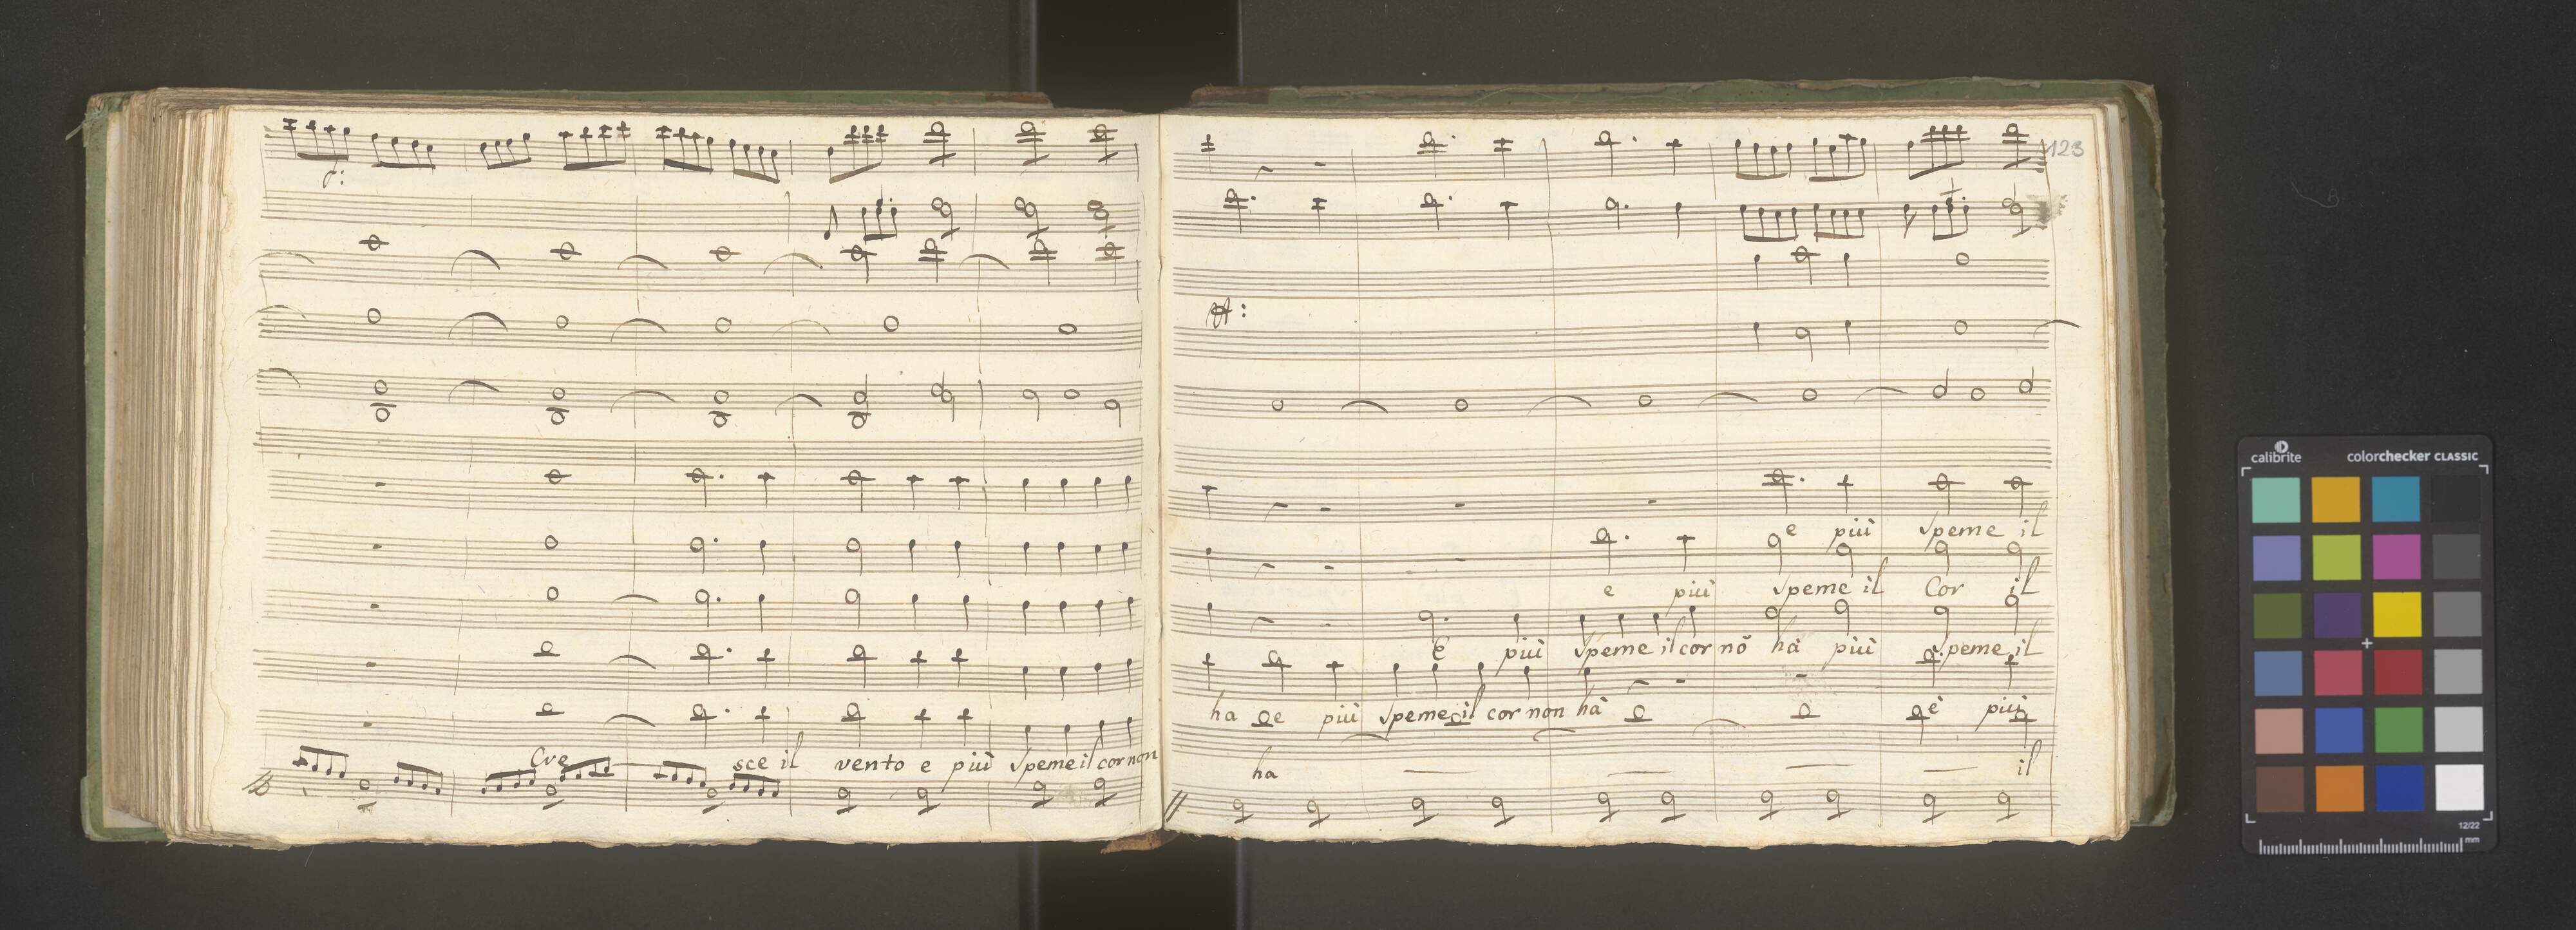 f:
Cre sce il vento e più Speme il cor non
123
ff:
e più Speme il
e più Speme il Cor il
E più Speme il cor nō hà più Speme il
ha e più Speme il cor non hà e più
ha il
calibrite colorchecker CLASSIC
12/22
mm